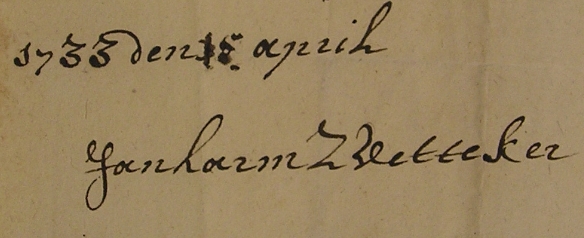 1733 den 18. april
Janharm Wetteker